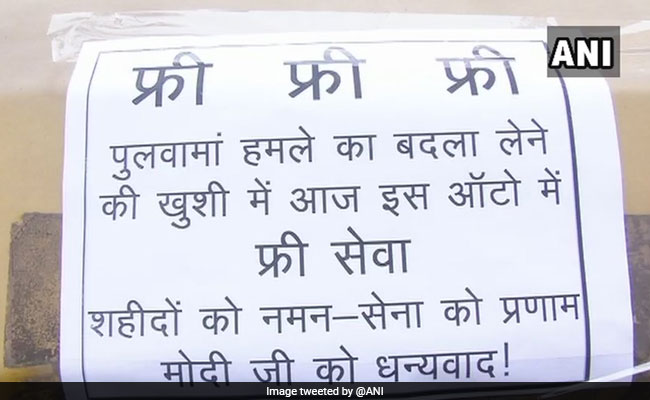 ANI
फ्री फ्री फ्री
पुलवामां हमले का बदला लेने
की खुशी में आज इस ऑटो में
फ्री सेवा
शहीदों को नमन–सेना को प्रणाम
मोदी जी को धन्यवाद!
Image tweeted by @ANI